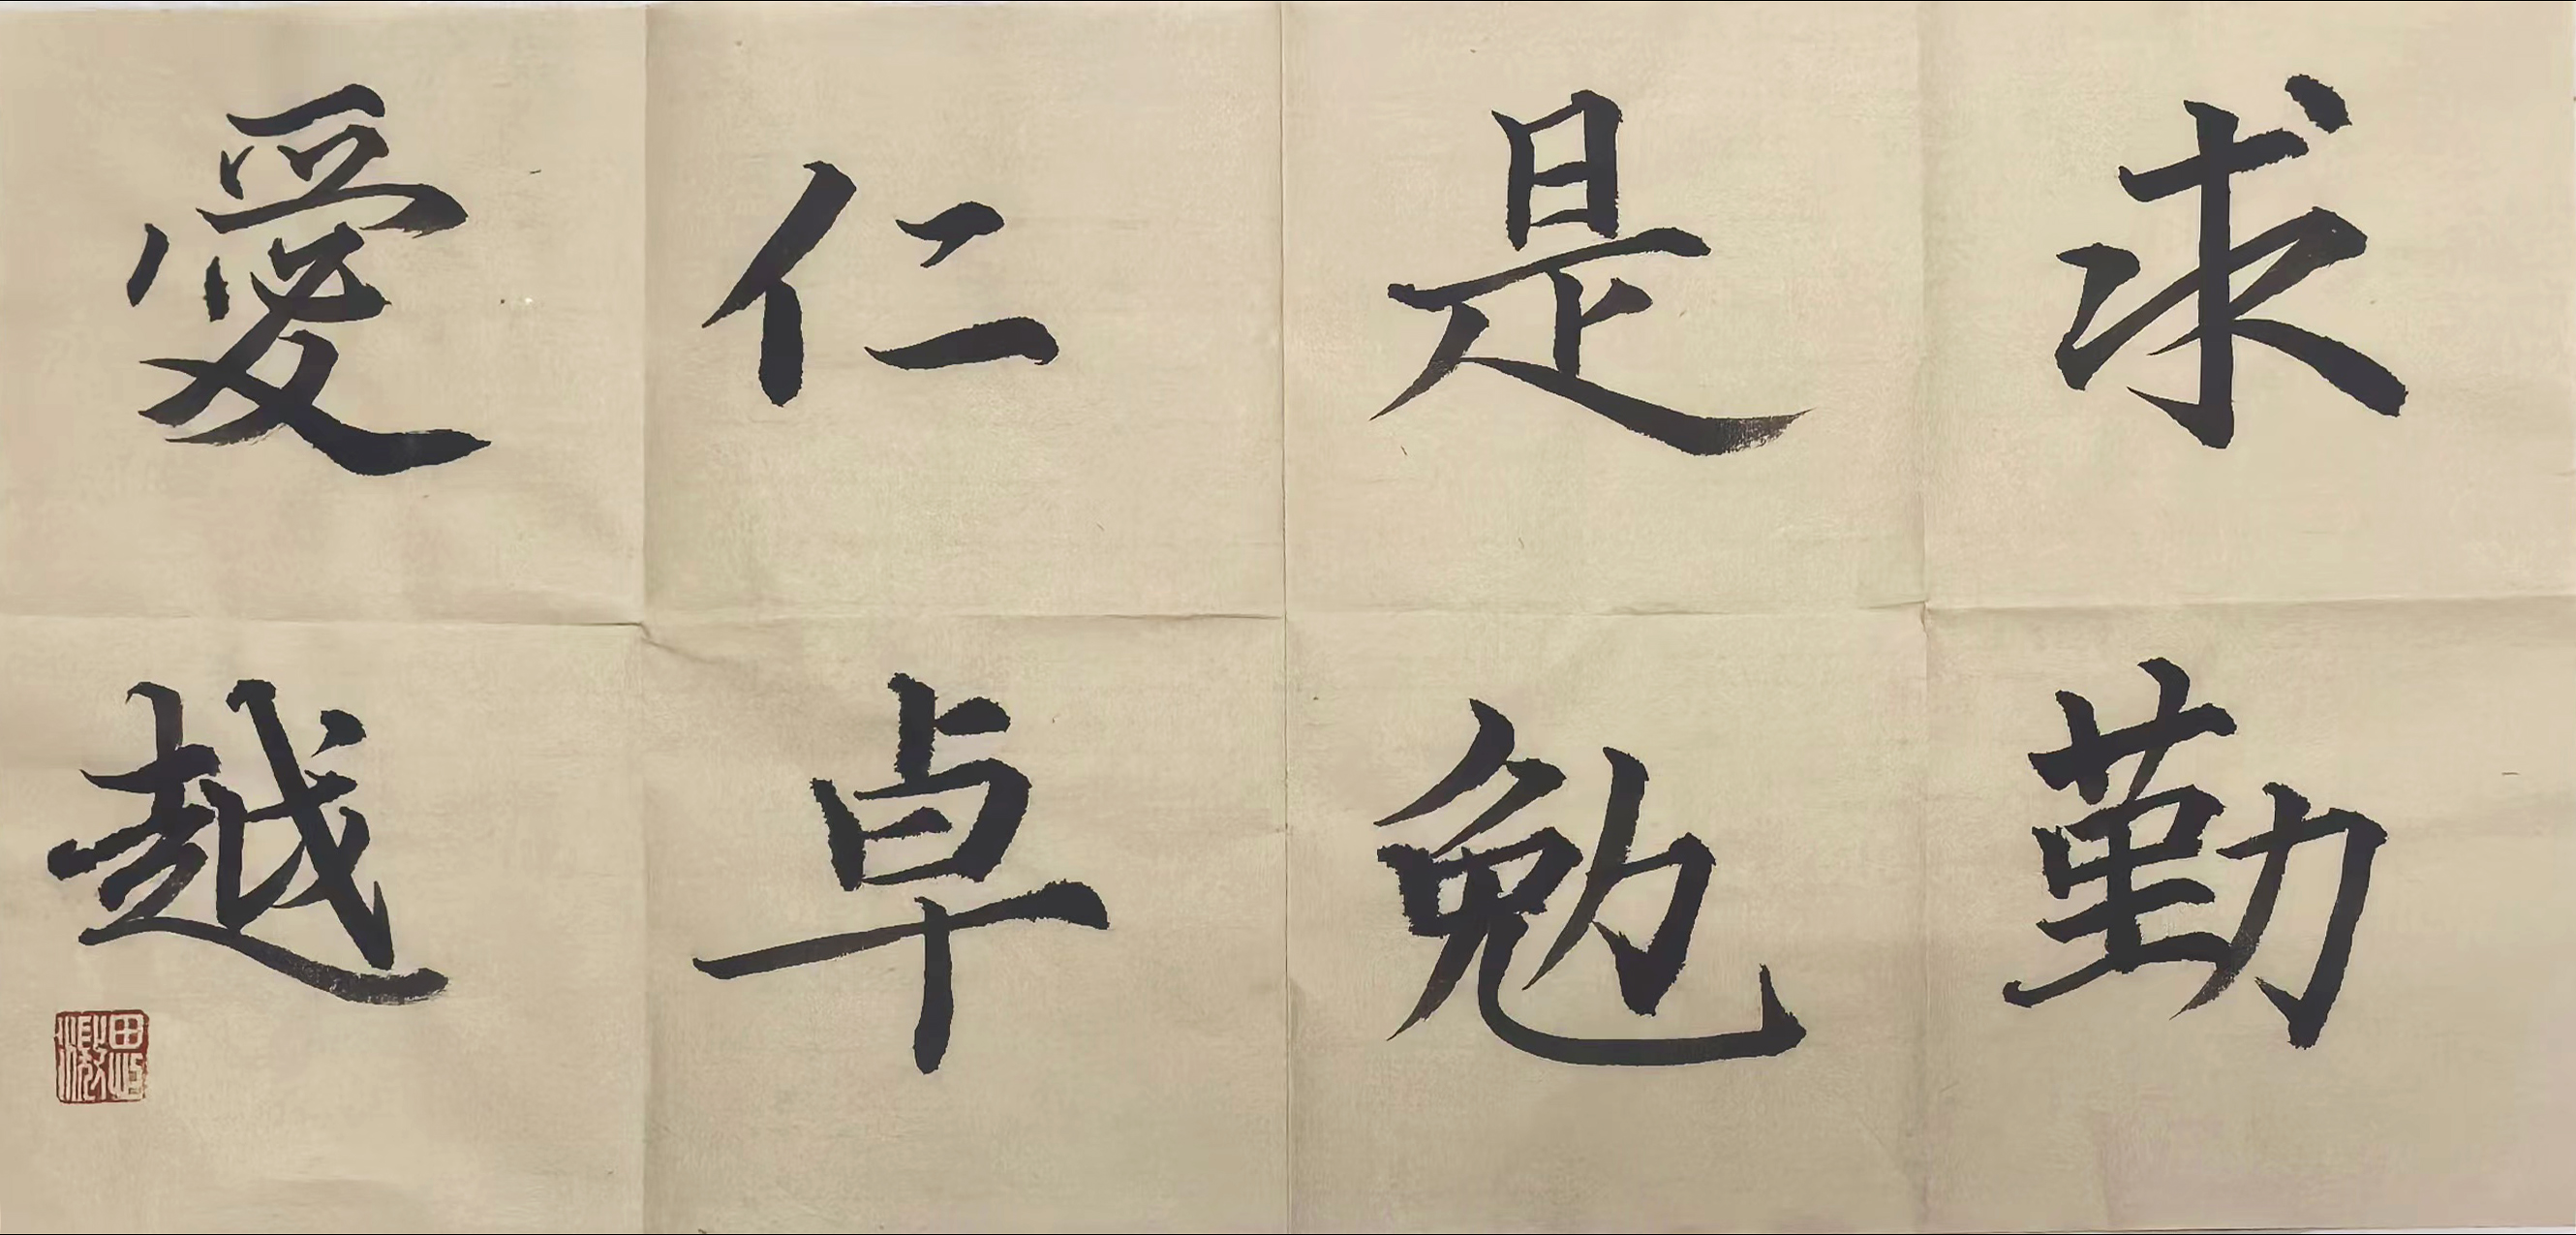 求是仁愛
勤勉卓越